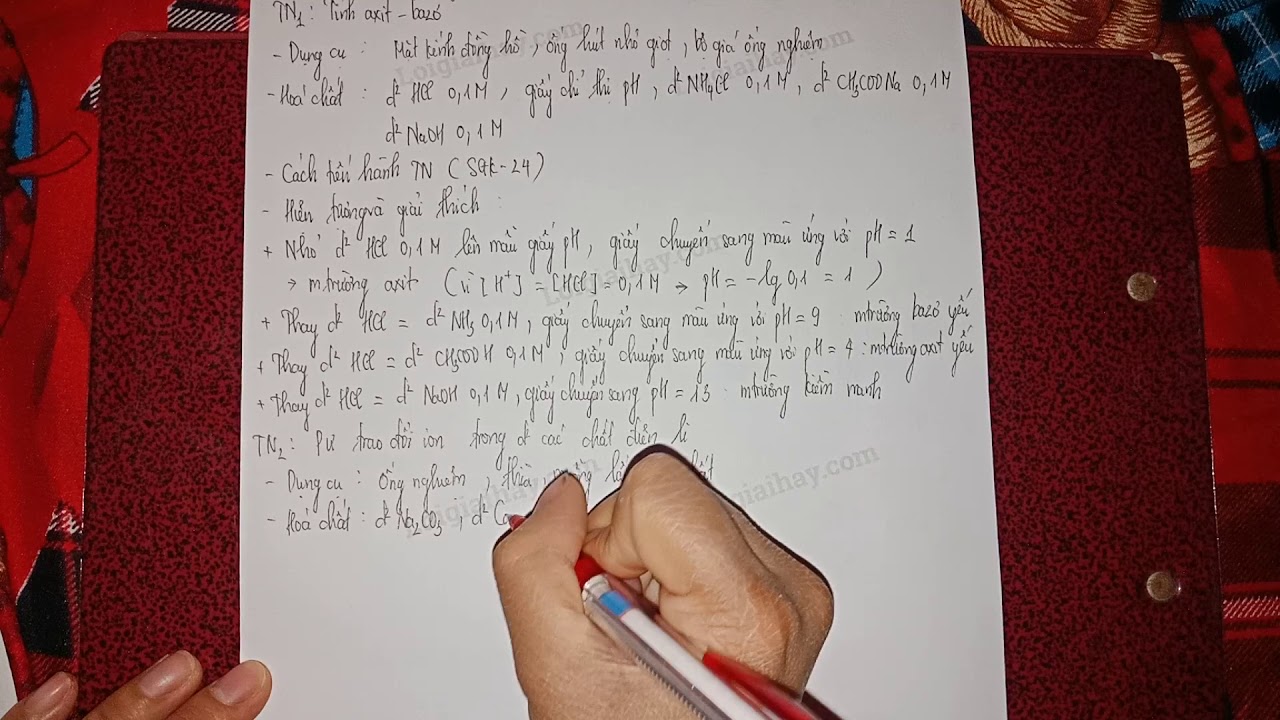 TN1: Tính axit - bazơ
- Dụng cụ : Mặt kính đồng hồ, ống hút nhỏ giọt, bộ giá ống nghiệm
- Hoá chất : d² HCl 0,1M, giấy chỉ thị pH, d² NH4Cl 0,1M, d² CH3COONa 0,1M
d² NaOH 0,1M
- Cách tiến hành TN (SGK-24)
- Hiện tượng và giải thích :
+ Nhỏ d² HCl 0,1M lên mẩu giấy pH, giấy chuyển sang màu ứng với pH = 1
→ mtrường axit (vì [H+] = [HCl] = 0,1M → pH = -lg 0,1 = 1)
+ Thay d² HCl = d² NH3 0,1M, giấy chuyển sang màu ứng với pH = 9 : mtrường bazơ yếu
+ Thay d² HCl = d² CH3COOH 0,1M, giấy chuyển sang màu ứng với pH = 4 : mtrường axit yếu
+ Thay d² HCl = d² NaOH 0,1M, giấy chuyển sang pH = 13 : mtrường kiềm mạnh
TN2: Pư trao đổi ion trong d² các chất điện li
- Dụng cụ : Ống nghiệm, thìa,
- Hoá chất : d² Na2CO3, d² Ca
Loigiaihay.com
Loigiaihay.com
Loigiaihay.com
Loigiaihay.com
Loigiaihay.com